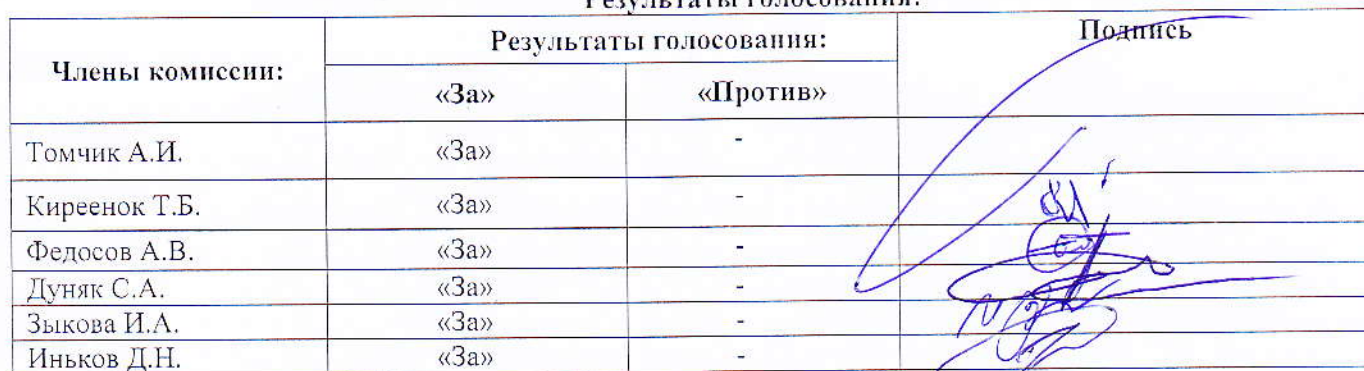 Результаты голосования:
Члены комиссии: Результаты голосования: Подпись
«За» «Против»
Томчик А.И. «За» -
Киреенок Т.Б. «За» -
Федосов А.В. «За» -
Дуняк С.А. «За» -
Зыкова И.А. «За» -
Иньков Д.Н. «За» -